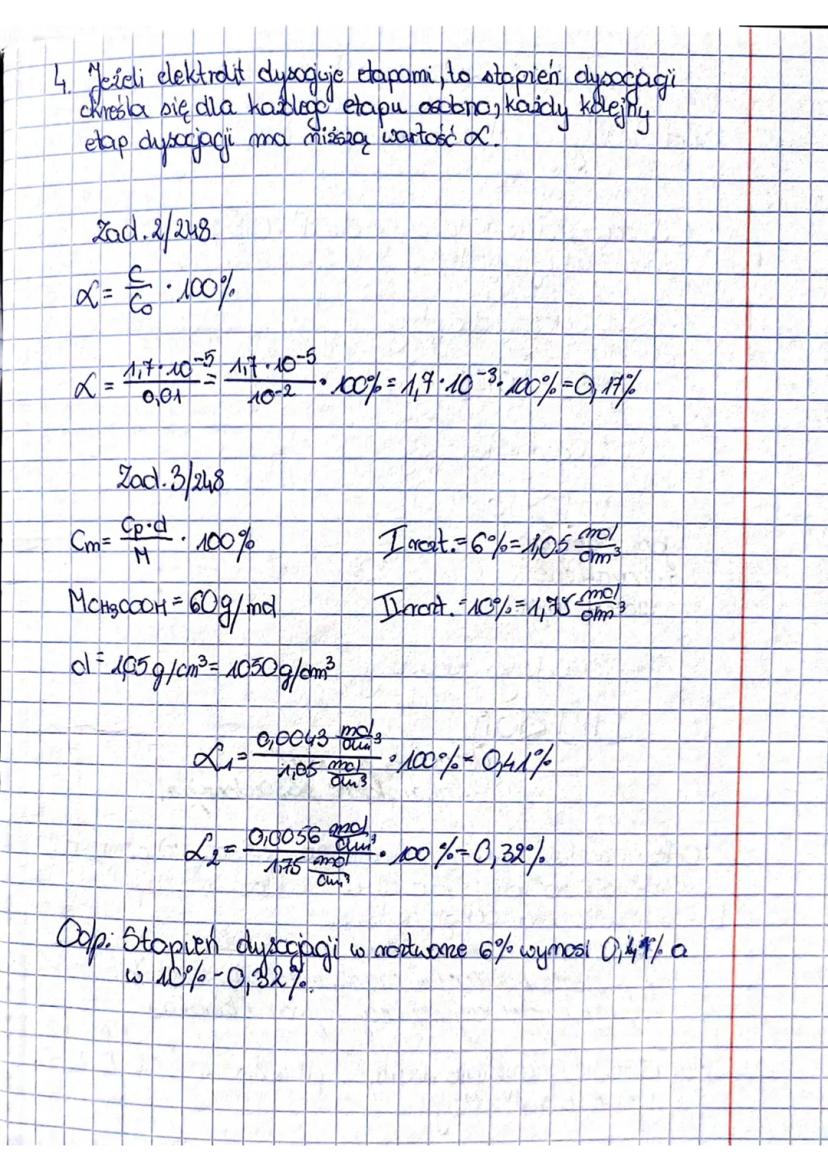 4. Jeżeli elektrolit dysocjuje etapami, to stopień dysocjacji
określa się dla każdego etapu osobno, każdy kolejny
etap dysocjacji ma niższą wartość α.
Zad. 2/248.
α = C/C₀ · 100%
α = 1,7·10⁻⁵/0,01 = 1,7·10⁻⁵/10⁻² · 100% = 1,7·10⁻³·100% = 0,17%
Zad. 3/248
Cm = Cp·d/M · 100%
I rozt. = 6% = 1,05 mol/dm³
MCH₃COOH = 60g/mol
II rozt. = 10% = 1,75 mol/dm³
d = 1,05 g/cm³ = 1050 g/dm³
α₁ = 0,0043 mol/dm³ / 1,05 mol/dm³ · 100% = 0,41%
α₂ = 0,0056 mol/dm³ / 1,75 mol/dm³ · 100% = 0,32%
Odp: Stopień dysocjacji w roztworze 6% wynosi 0,41% a
w 10% - 0,32%.